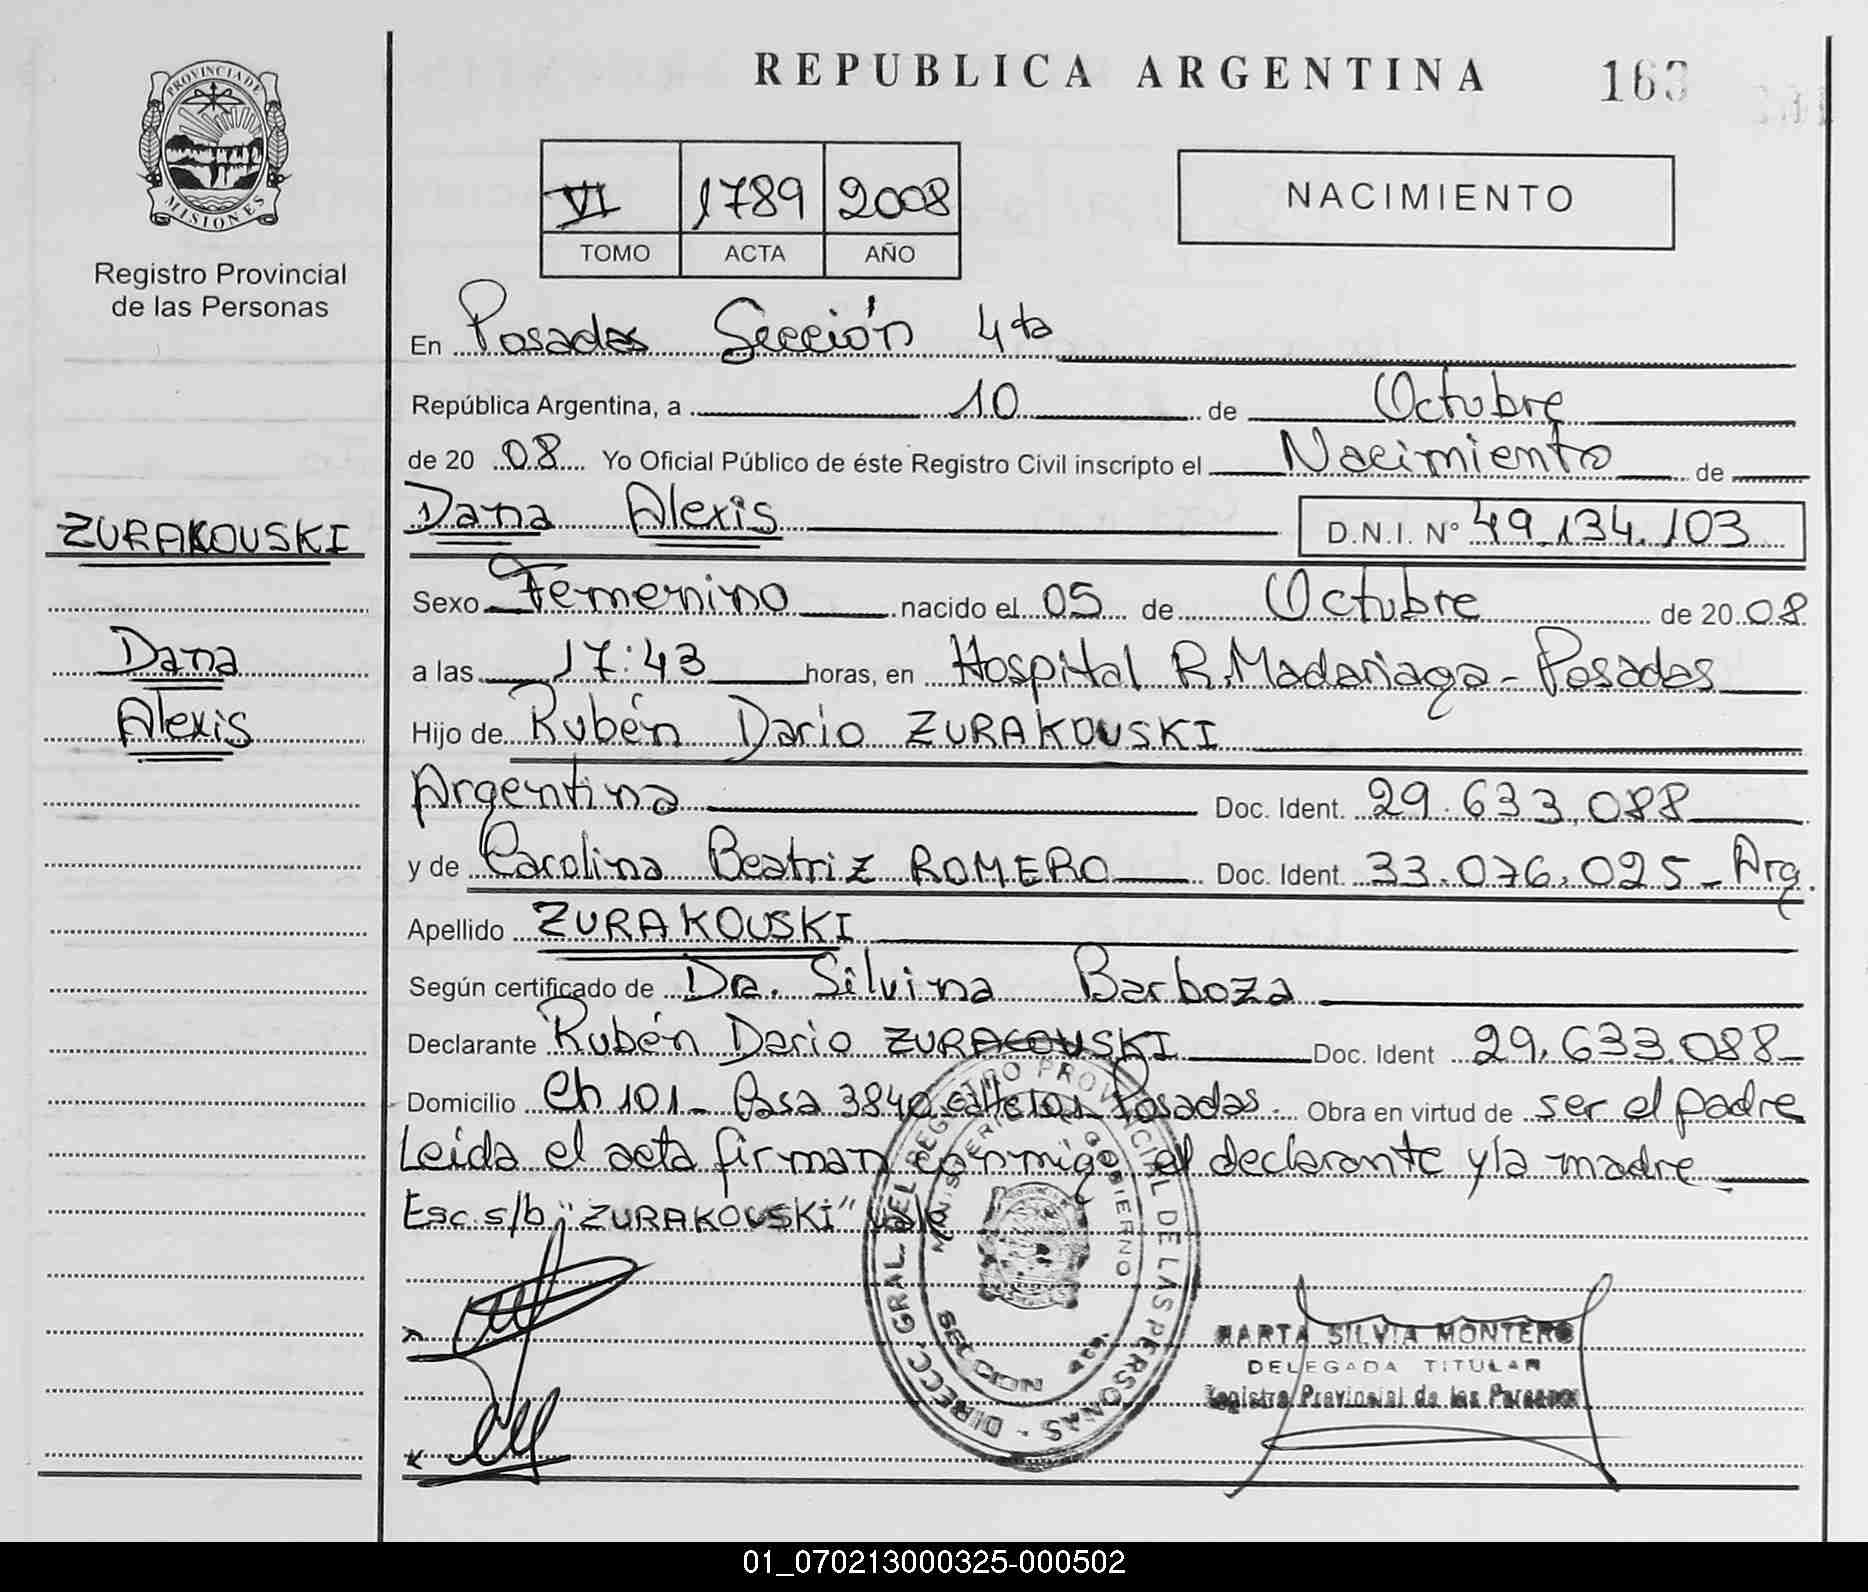 REPUBLICA ARGENTINA 163
PROVINCIA DE
MISIONES
Registro Provincial
de las Personas
VI 1789 2008
TOMO ACTA AÑO
NACIMIENTO
En Posadas Sección 4ta
República Argentina, a 10 de Octubre
de 20 08 Yo Oficial Público de éste Registro Civil inscripto el Nacimiento de
ZURAKOUSKI
Dana Alexis D.N.I. Nº 49.134.103
Sexo Femenino nacido el 05 de Octubre de 20 08
Dana
a las 17:43 horas, en Hospital R. Madariaga - Posadas
Alexis
Hijo de Rubén Dario ZURAKOUSKI
Argentina Doc. Ident. 29.633.088
y de Carolina Beatriz ROMERO Doc. Ident. 33.076.025 - Arg.
Apellido ZURAKOUSKI
Según certificado de Dra. Silvina Barboza
Declarante Rubén Dario ZURACOUSKI Doc. Ident 29.633.088
Domicilio Ch 101 - Casa 3840 calle 101 Posadas. Obra en virtud de ser el padre
Leida el acta firman conmigo el declarante y la madre
Esc. s/b "ZURAKOUSKI" vale
DIRECC. GRAL. DEL REGISTRO PROVINCIAL DE LAS PERSONAS
MINISTERIO DE GOBIERNO
SECCION 4ta
MARTA SILVIA MONTERO
DELEGADA TITULAR
Registro Provincial de las Personas
01_070213000325-000502